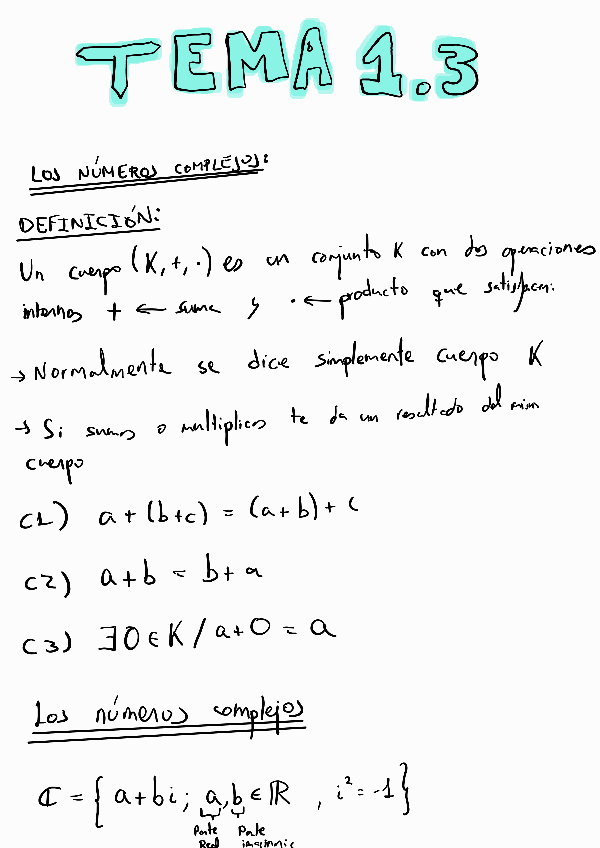 TEMA 1.3
LOS NÚMEROS COMPLEJOS:
DEFINICIÓN:
Un cuerpo (K, +, ·) es un conjunto K con dos operaciones
internas + ← suma y · ← producto que satisfacen:
→ Normalmente se dice simplemente cuerpo K
→ Si sumas o multiplicas te da un resultado del mism
cuerpo
C1) a + (b+c) = (a+b) + c
C2) a+b = b+a
C3) ∃0 ∈ K / a+0 = a
Los números complejos
ℂ = { a+bi ; a,b ∈ ℝ , i² = -1 }
Parte Parte
Real imaginaria